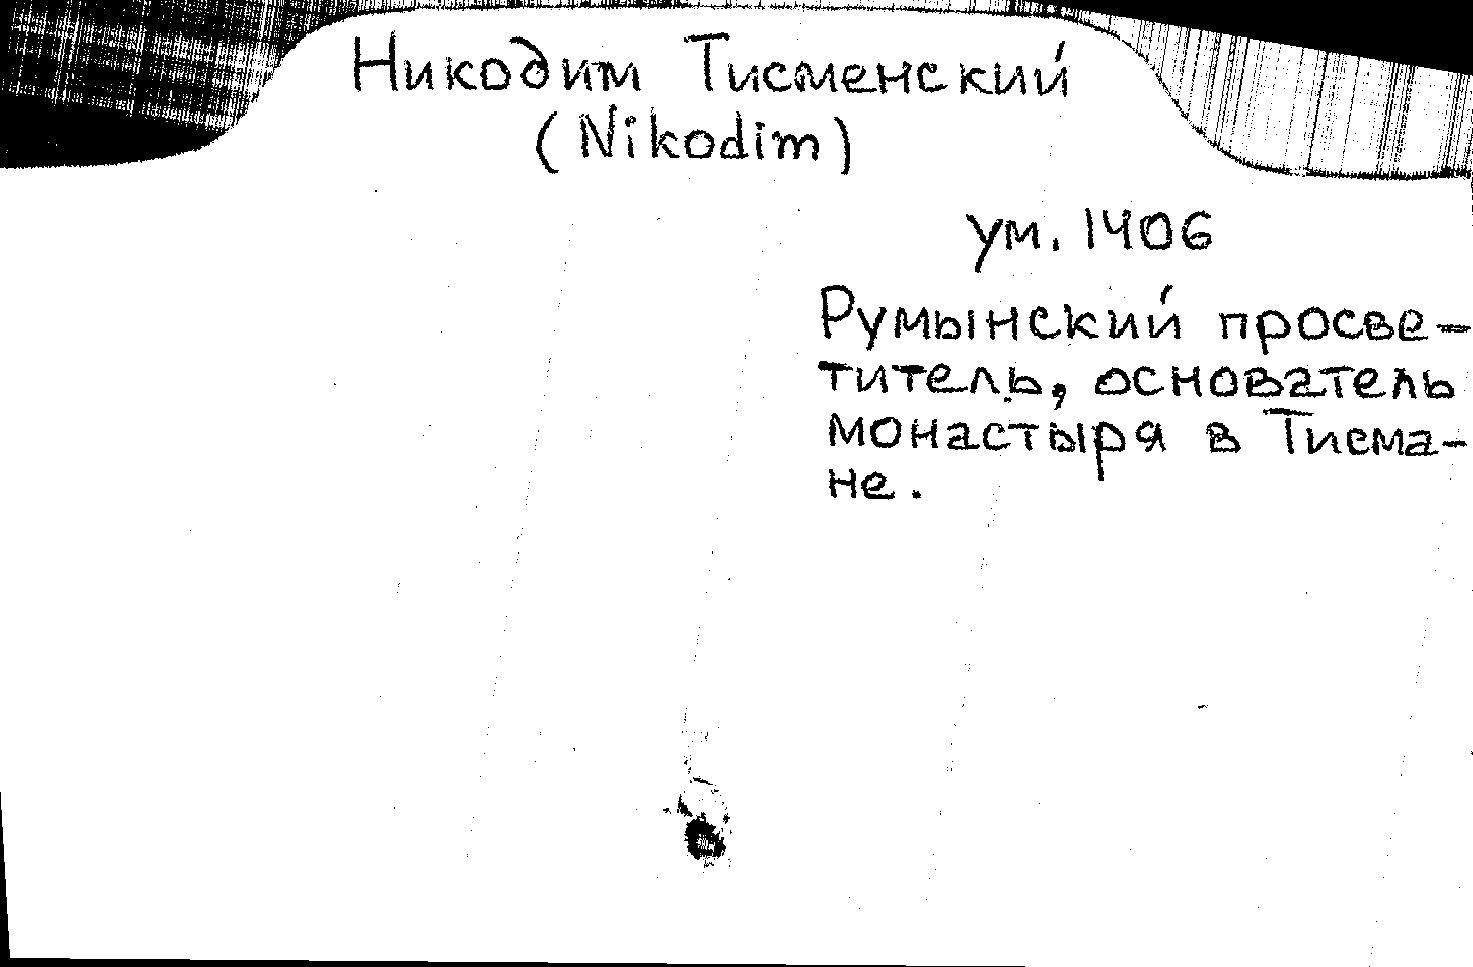 Никодим Тисменский
(Nikodim)
ум. 1406
Румынский просве-
титель, основатель
монастыря в Тисма-
не.